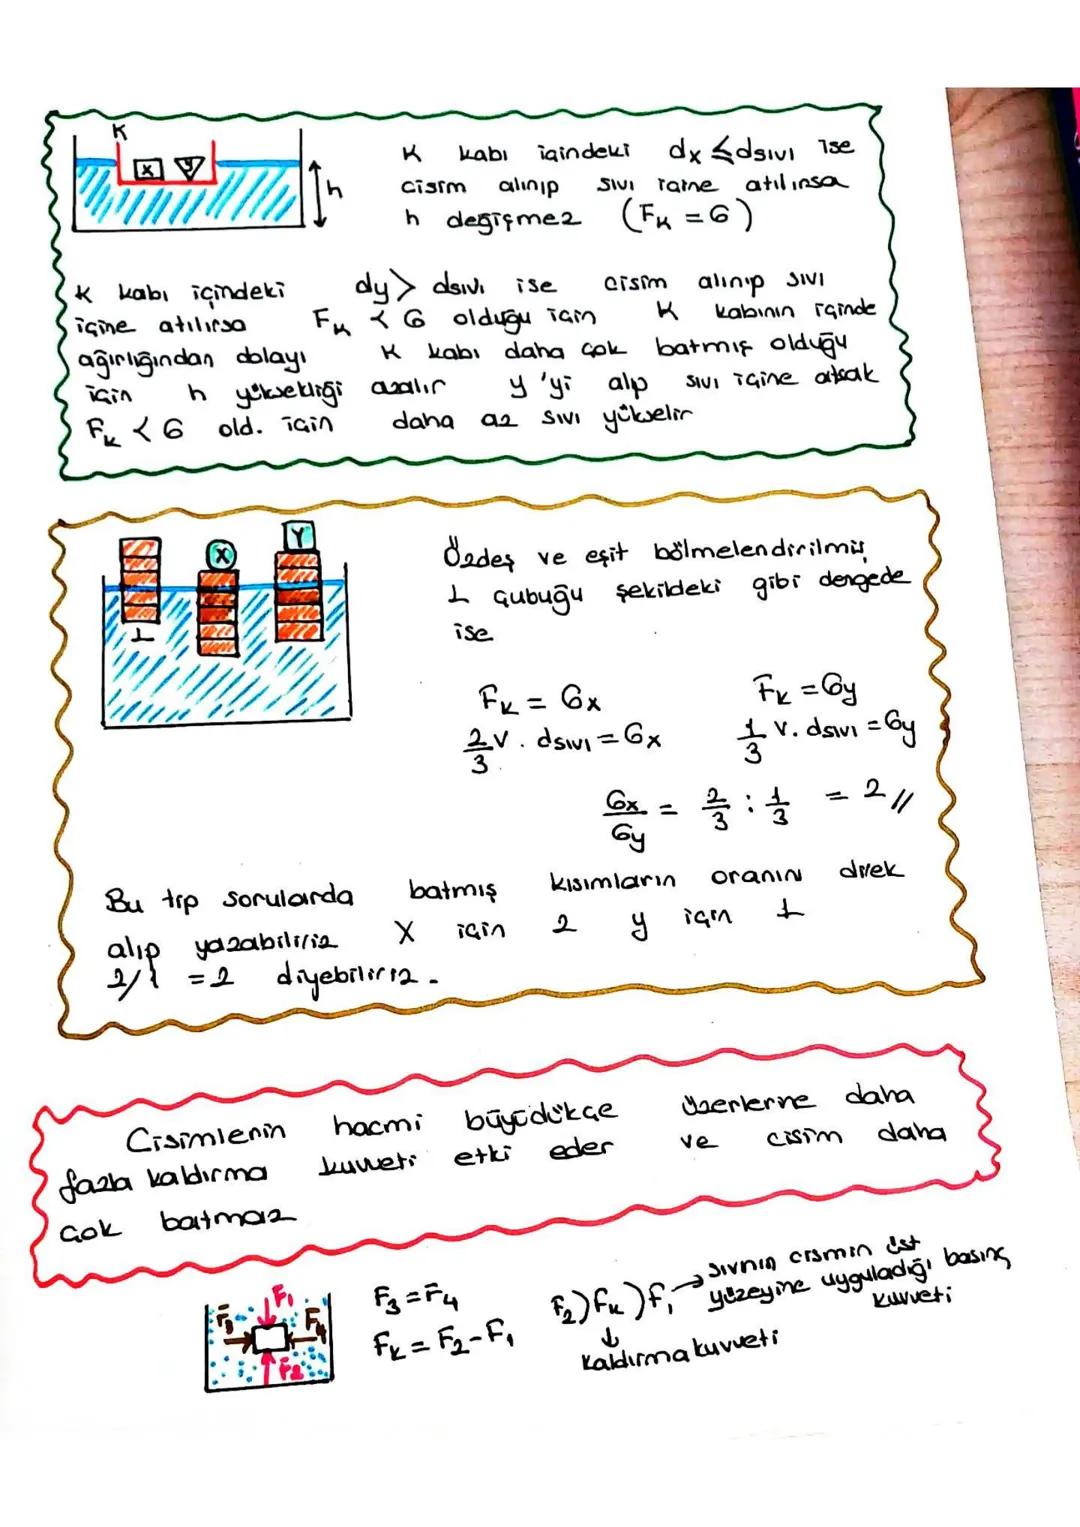 K
X y
h
K kabı içindeki dx ≤ dsıvı ise
cisim alınıp sıvı içine atılırsa
h değişmez (FK = G)
K kabı içindeki dy > dsıvı ise cisim alınıp sıvı
içine atılırsa FK < G olduğu için K kabının içinde
ağırlığından dolayı K kabı daha çok batmış olduğu
için h yüksekliği azalır y'yi alıp sıvı içine atsak
FK < G old. için daha az sıvı yükselir
X Y
L
Özdeş ve eşit bölmelendirilmiş
L çubuğu şekildeki gibi dengede
ise
FK = Gx FK = Gy
2/3 V . dsıvı = Gx 1/3 V. dsıvı = Gy
Gx/Gy = 2/3 : 1/3 = 2//
Bu tip sorularda batmış kısımların oranın direk
alıp yazabiliriz X için 2 y için 1
2/1 = 2 diyebiliriz.
Cisimlerin hacmi büyüdükçe üzerlerine daha
fazla kaldırma kuvveti etki eder ve cisim daha
çok batmaz
F1
F3 F4
F2
F3 = F4
FK = F2 - F1
F2 > FK > F1 → sıvının cismin üst
yüzeyine uyguladığı basınç
kuvveti
↓
kaldırma kuvveti